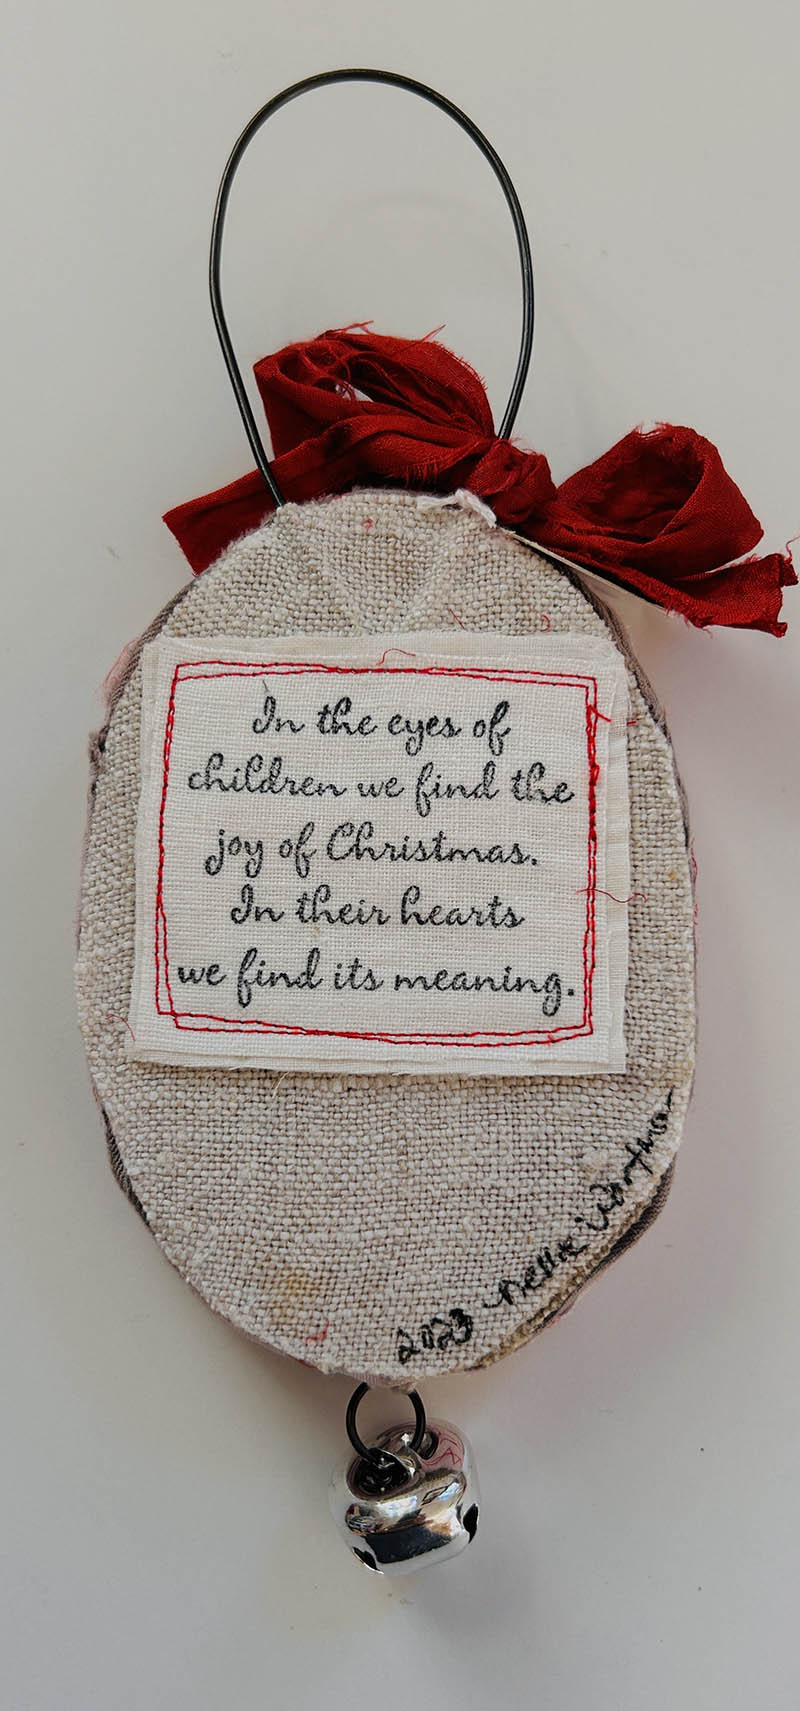 In the eyes of
children we find the
joy of Christmas.
In their hearts
we find its meaning.
2023 Nella